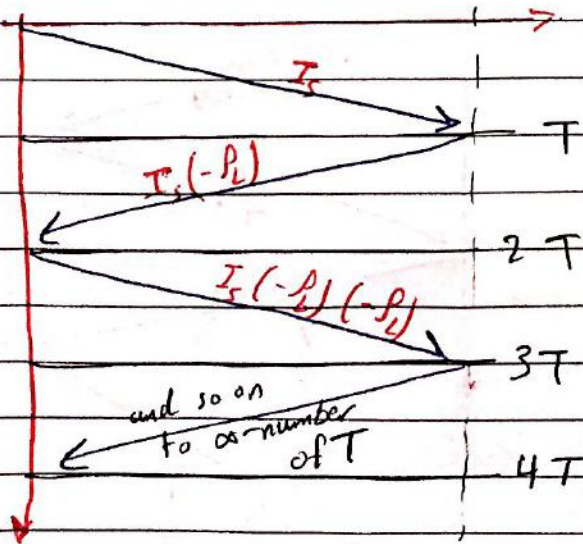 I_s
T
I_s(-ρ_L)
2T
I_s(-ρ_L)(-ρ_L)
3T
and so on
to ∞-number
of T
4T